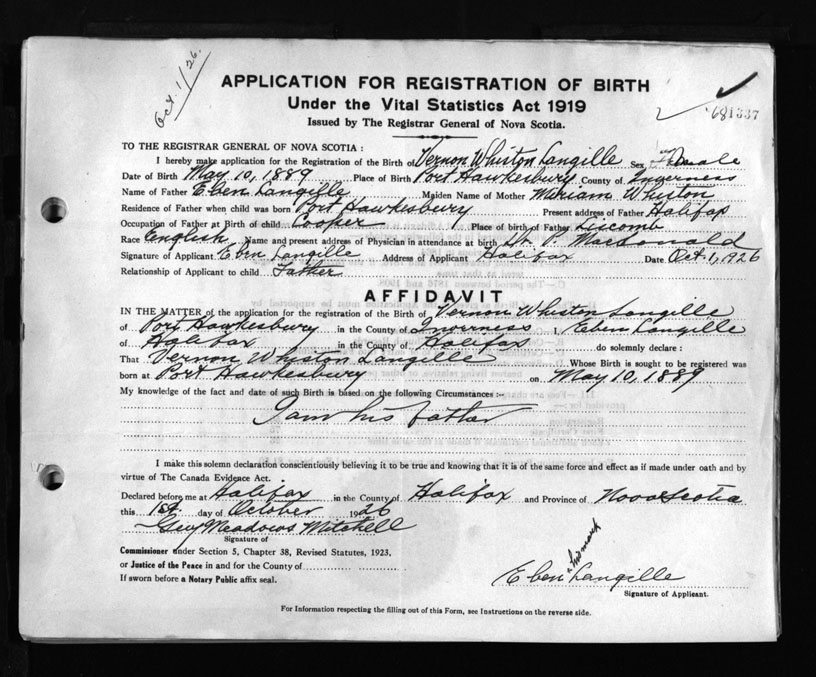 Oct. 1/26.
APPLICATION FOR REGISTRATION OF BIRTH
Under the Vital Statistics Act 1919
Issued by The Registrar General of Nova Scotia.
681337
TO THE REGISTRAR GENERAL OF NOVA SCOTIA :
I hereby make application for the Registration of the Birth of Vernon Whiston Langille Sex Male
Date of Birth May 10, 1889 Place of Birth Port Hawkesbury County of Inverness
Name of Father Eben Langille Maiden Name of Mother Miriam Whiston
Residence of Father when child was born Port Hawkesbury Present address of Father Halifax
Occupation of Father at Birth of child Cooper Place of birth of Father Liscomb
Race English Name and present address of Physician in attendance at birth Dr. P. Macdonald
Signature of Applicant Eben Langille Address of Applicant Halifax Date Oct. 1, 1926
Relationship of Applicant to child Father
AFFIDAVIT
IN THE MATTER of the application for the registration of the Birth of Vernon Whiston Langille
of Port Hawkesbury in the County of Inverness I, Eben Langille
of Halifax in the County of Halifax do solemnly declare :
That Vernon Whiston Langille Whose Birth is sought to be registered was
born at Port Hawkesbury on May 10, 1889
My knowledge of the fact and date of such Birth is based on the following Circumstances :-
I am his father
I make this solemn declaration conscientiously believing it to be true and knowing that it is of the same force and effect as if made under oath and by
virtue of The Canada Evidence Act.
Declared before me at Halifax in the County of Halifax and Province of Nova Scotia
this 1st day of October 1926
Guy Meadows Mitchell
Signature of
Commissioner under Section 5, Chapter 38, Revised Statutes, 1923,
or Justice of the Peace in and for the County of
If sworn before a Notary Public affix seal.
his mark
Eben x Langille
Signature of Applicant.
For Information respecting the filling out of this Form, see Instructions on the reverse side.